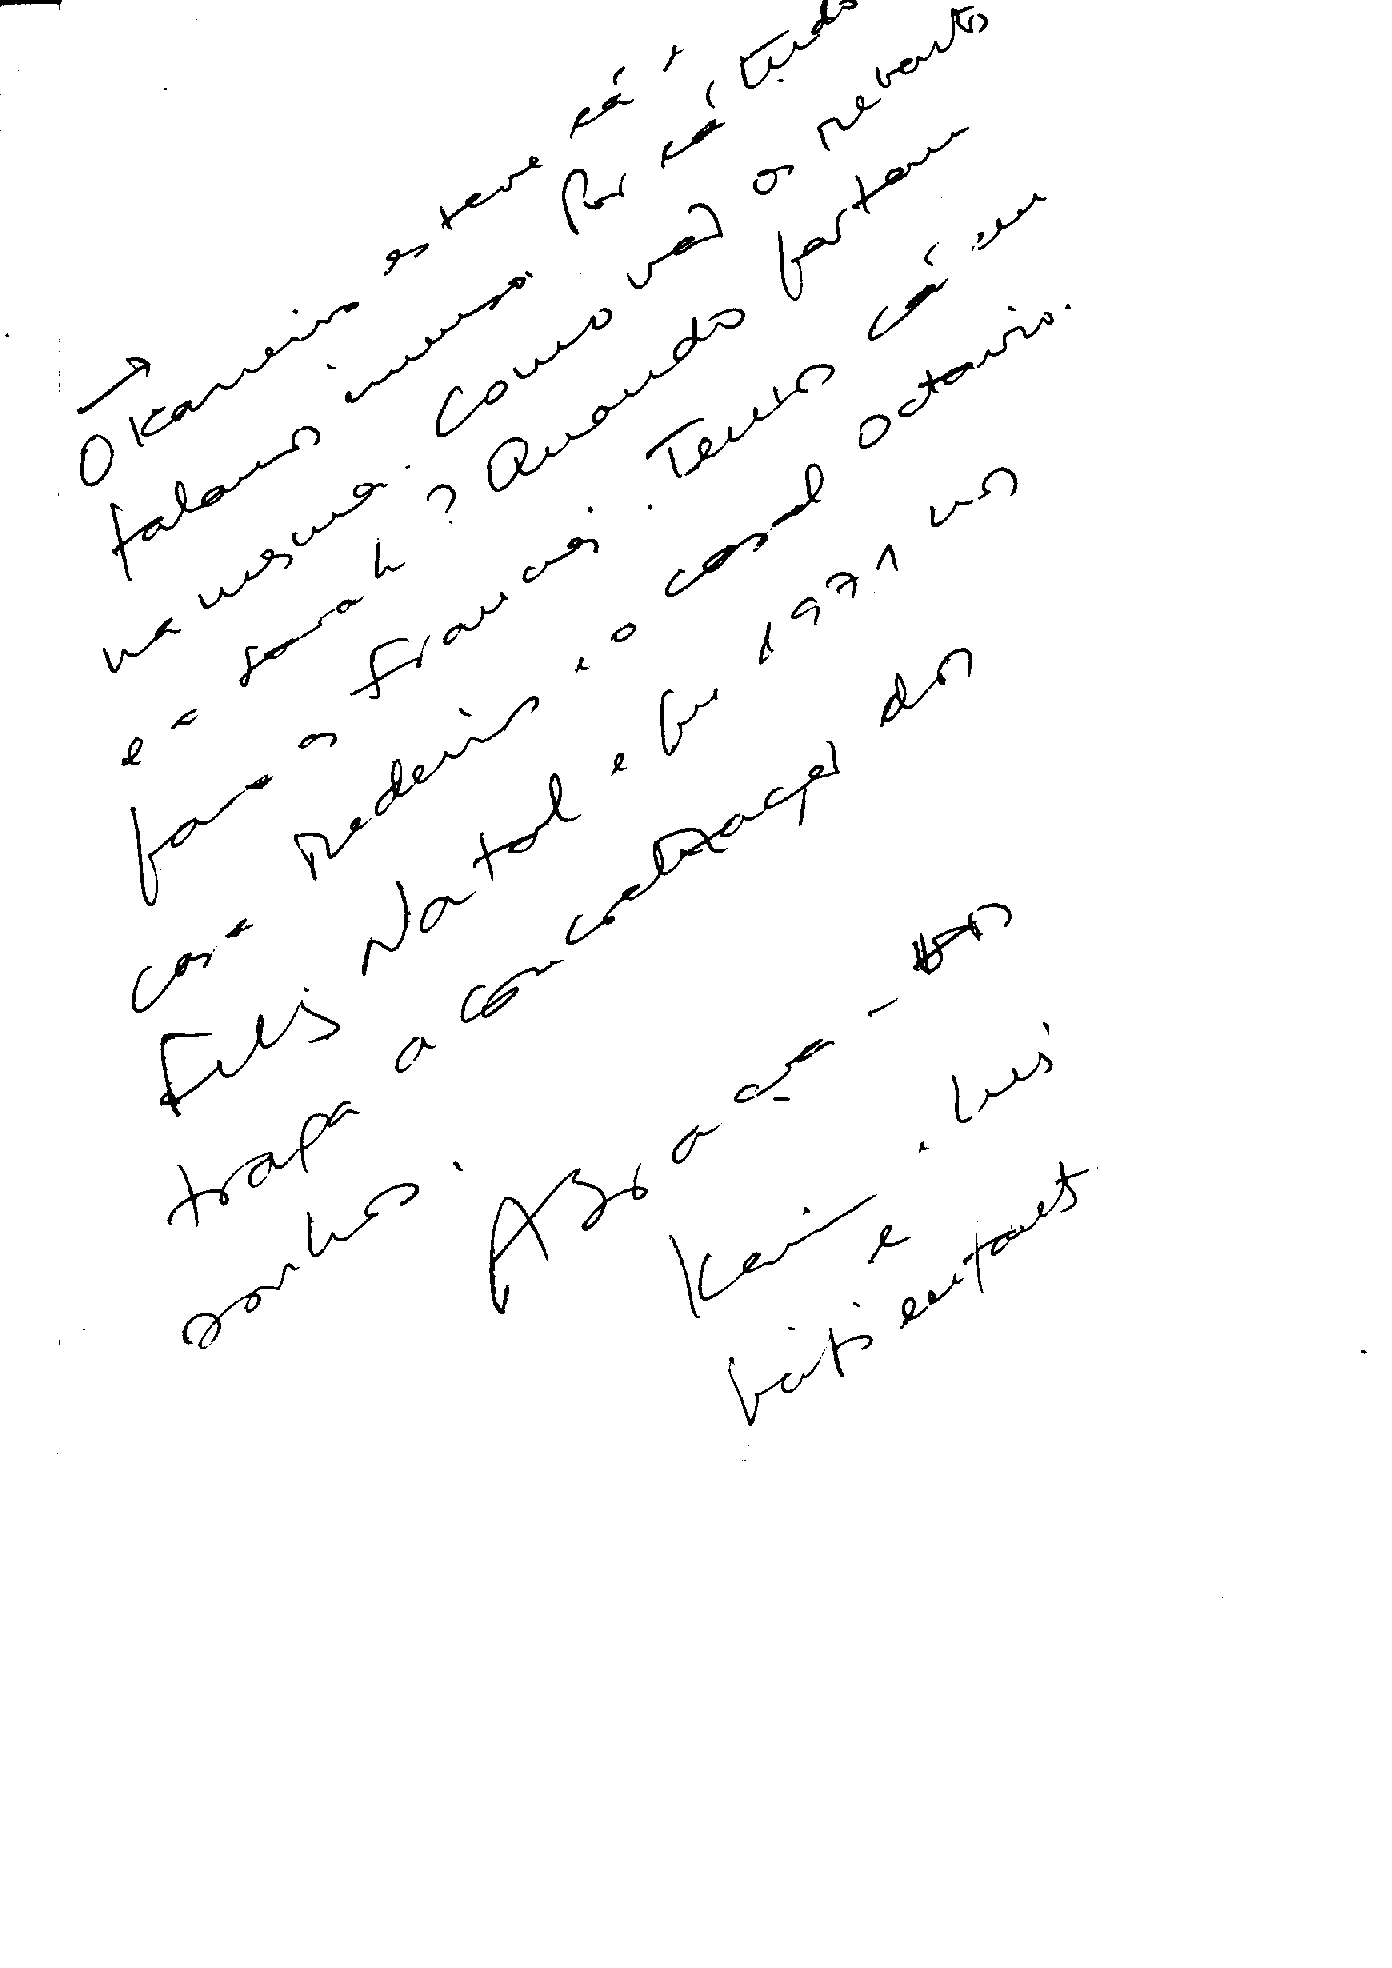 O Karneiro esteve cá e
falamos imenso. Por cá tudo
na mesma. Como vão os
e a Sarah? Quando partem
para a França. Temos cá em
casa Medeiros e o casal Octavio.
Feliz Natal e que 1971 nos
traga a concretização dos
sonhos.
Abraça-os
Karin e Luis
e